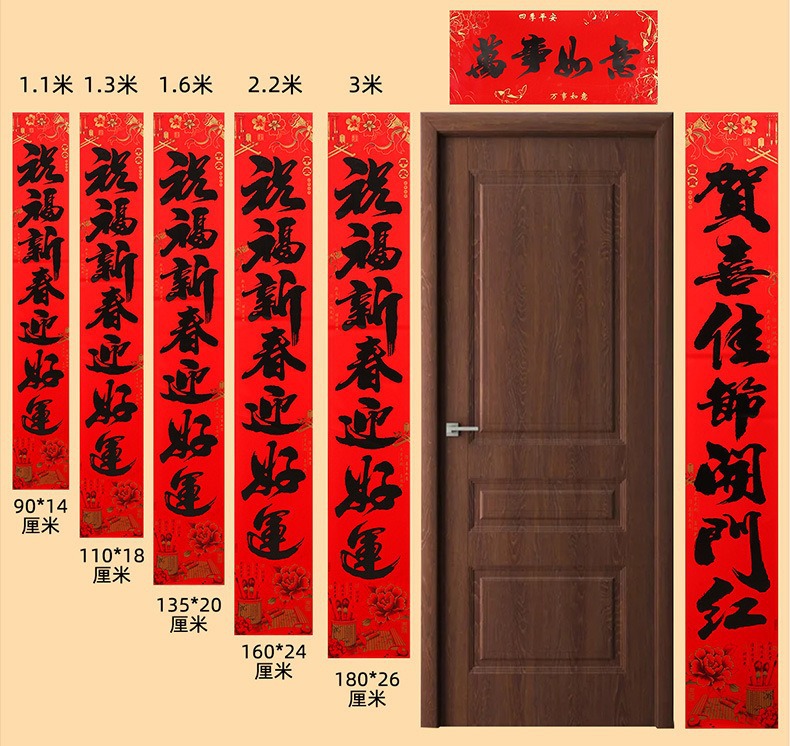 四季平安
萬事如意
福
万事如意
1.1米
1.3米
1.6米
2.2米
3米
祝福新春迎好運
祝福新春迎好運
祝福新春迎好運
祝福新春迎好運
祝福新春迎好運
賀喜佳節開門红
90*14
厘米
110*18
厘米
135*20
厘米
160*24
厘米
180*26
厘米